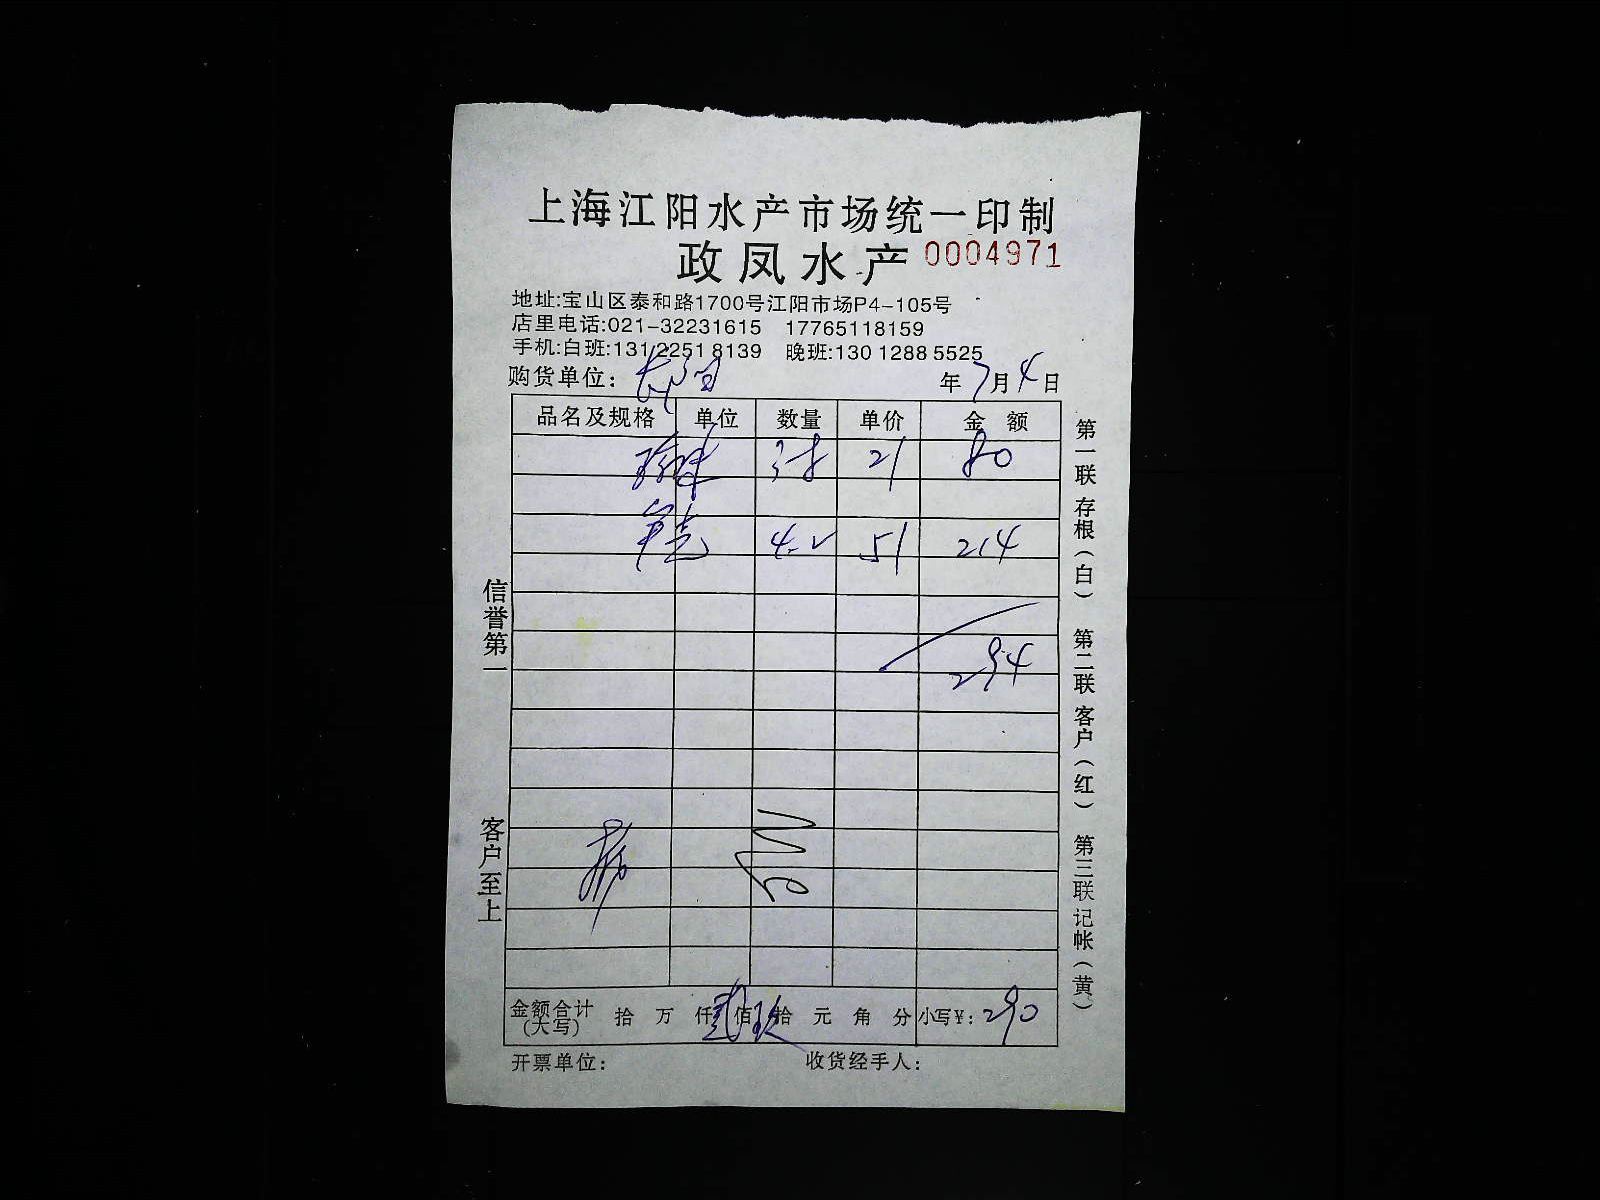 上海江阳水产市场统一印制
政凤水产 0004971
地址:宝山区泰和路1700号江阳市场P4-105号
店里电话:021-32231615 17765118159
手机:白班:131 2251 8139 晚班:130 1288 5525
购货单位: 年7月4日
品名及规格 单位 数量 单价 金额
3.8 21 80
4.2 51 214
294
金额合计(大写) 拾 万 仟 贰佰 玖拾 元 角 分 小写¥: 290
开票单位: 收货经手人:
信誉第一
客户至上
第一联 存根(白) 第二联 客户(红) 第三联 记帐(黄)